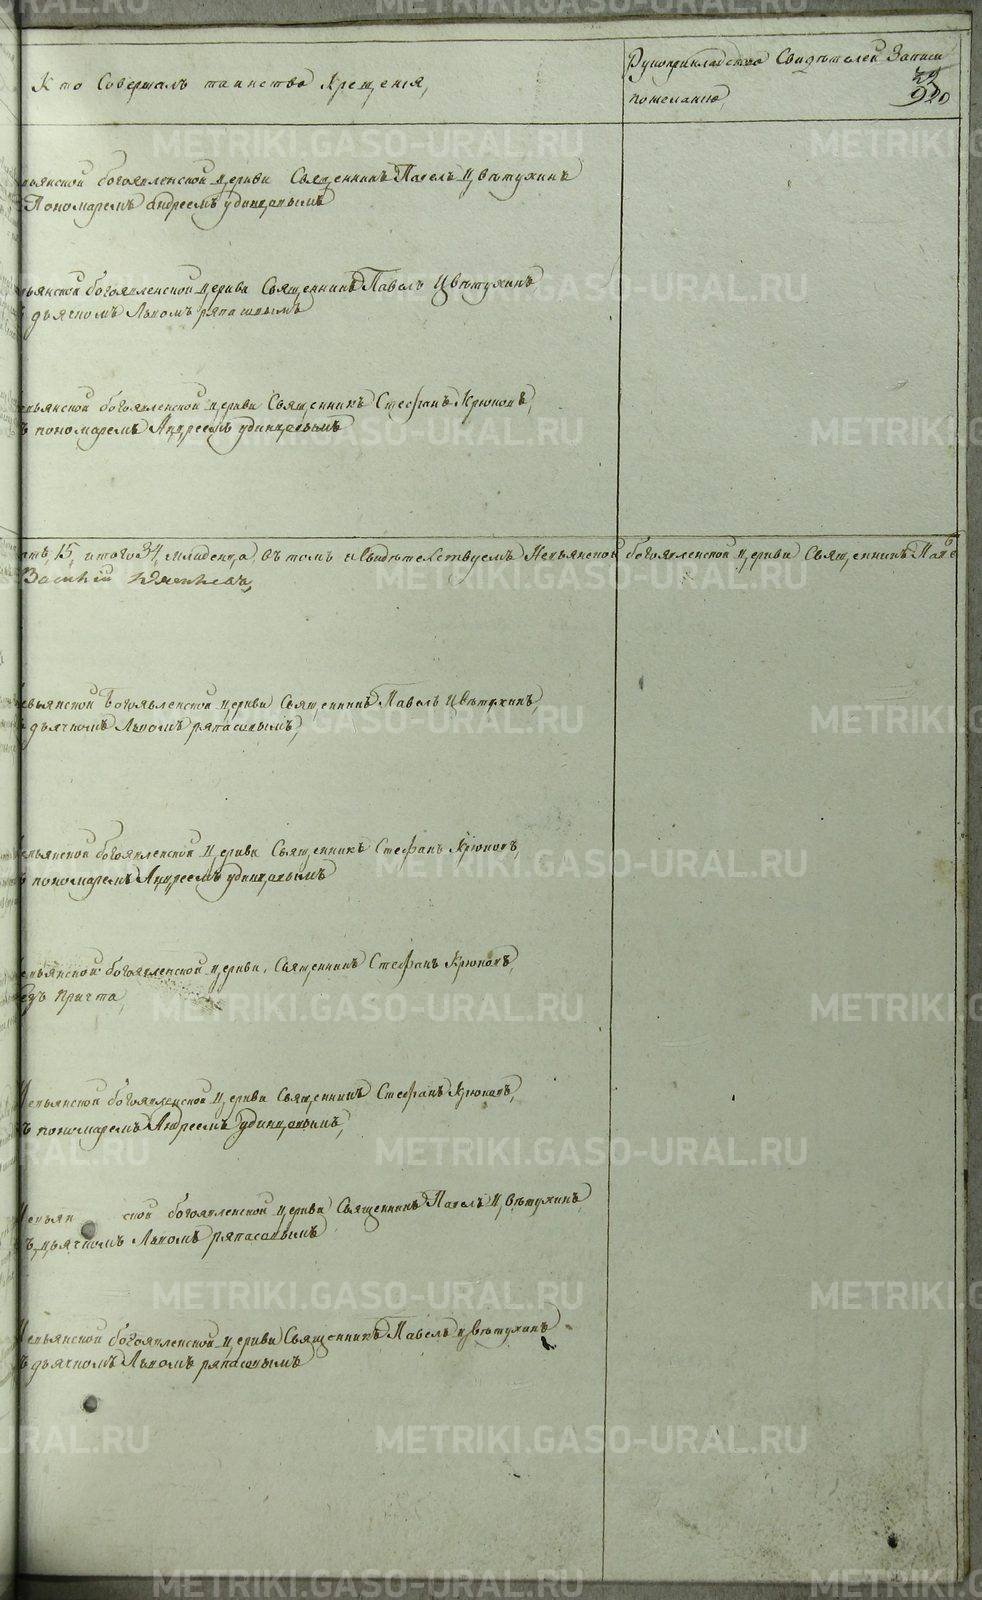 Кто Совершалъ таинство Крещенія,
Рукоприкладство Свидѣтелей Записи
пожеланію,
920
вьянской богоявленской церкви Священникъ Павелъ Цвѣтухинъ
Пономаремъ андреемъ удинцовымъ
вьянской богоявленской церкви Священникъ Павелъ Цвѣтухинъ
дьячкомъ Львомъ ряпасовымъ
евьянской богоявленской церкви Священникъ Стефанъ Крюковъ,
ъ пономаремъ Андреемъ удинцовымъ
15, итого 34, младенца, въ томъ и Свидѣтельствуемъ Невьянской богоявленской церкви Священникъ Паве
Василій
евьянской Богоявленской церкви Священникъ Павелъ Цвѣтухинъ,
дьячкомъ Львомъ ряпасовымъ,
евьянской богоявленской церкви Священникъ Стефанъ Крюковъ,
пономаремъ Андреемъ удинцовымъ
евьянской богоявленской церкви, Священникъ Стефанъ Крюковъ,
безъ причта,
Невьянской богоявленской церкви Священникъ Стефанъ Крюковъ,
ъ пономаремъ Андреемъ удинцовымъ,
Невьян ской богоявленской церкви Священникъ Павелъ Цвѣтухинъ,
ъ дьячкомъ Львомъ ряпасовымъ
Невьянской богоявленской церкви Священникъ Павелъ цвѣтухинъ
ъ дьячкомъ Львомъ ряпасовымъ
METRIKI.GASO-URAL.RU